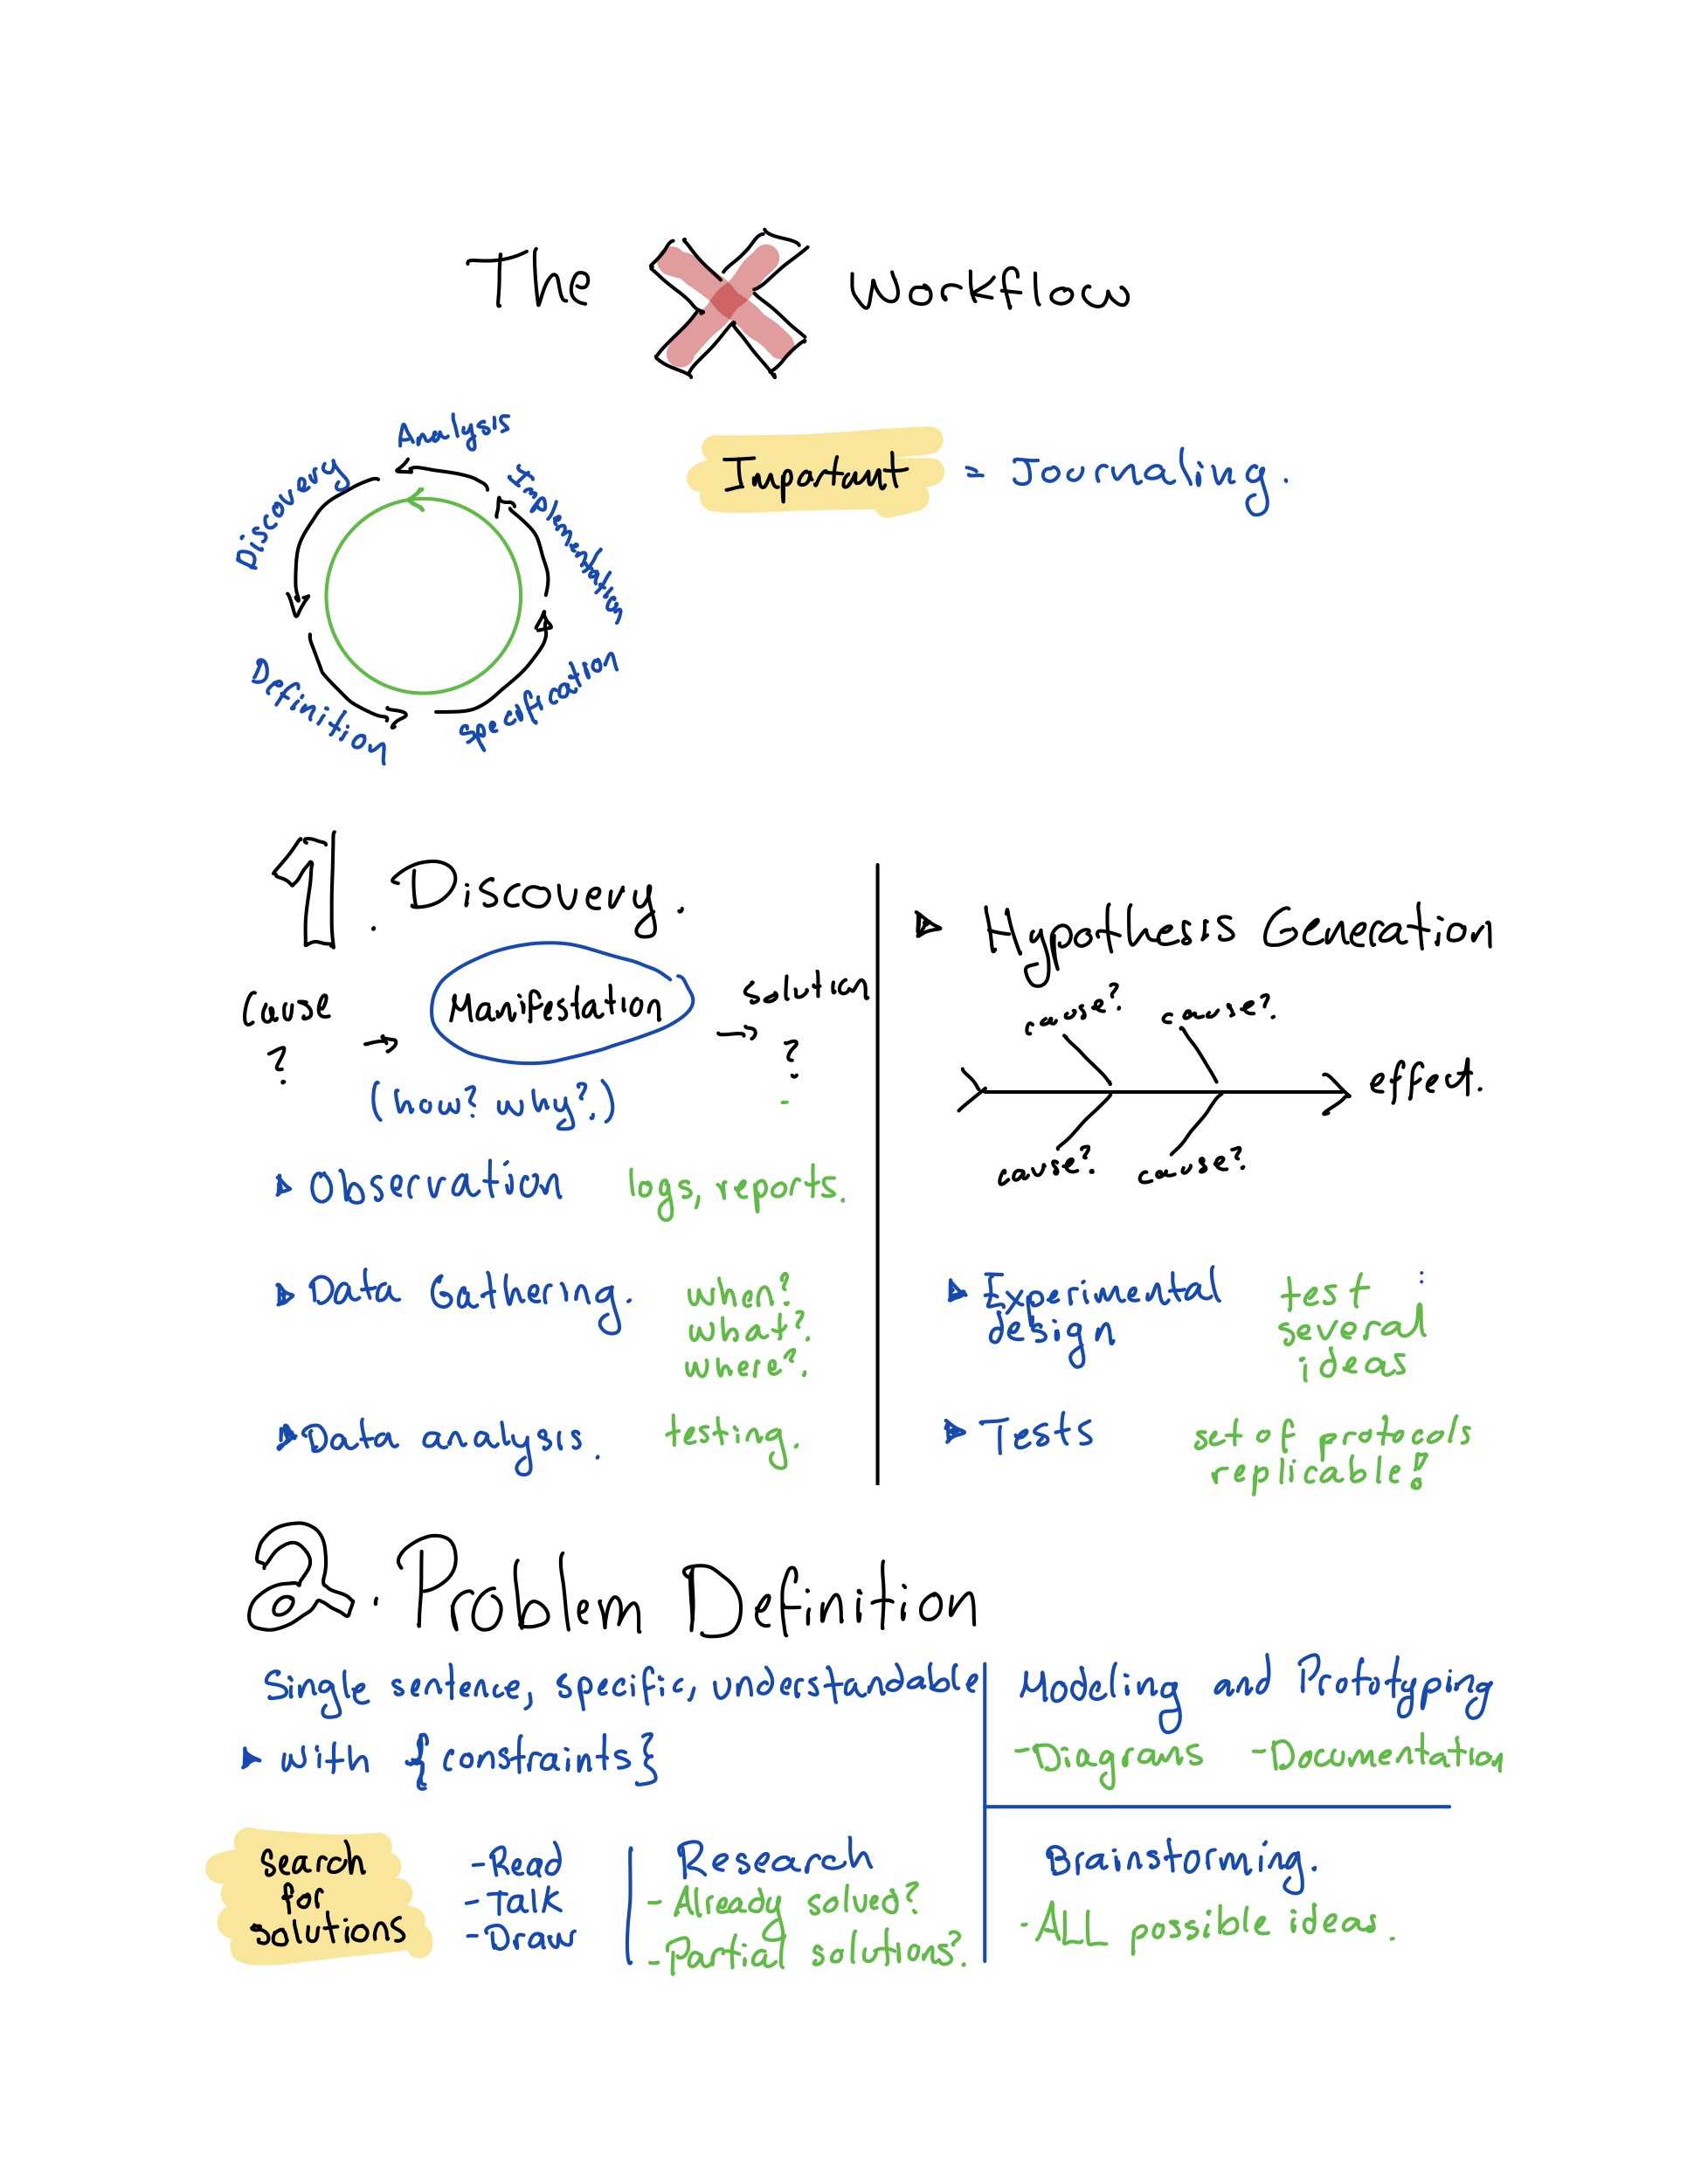 The X Workflow
Analysis
Discovery
Implementation
Definition
Specification
Important = Journaling.
1. Discovery.
Cause
?
→
Manifestation
→
solution
?
(how? why?.)
Observation logs, reports.
Data Gathering. when?
what?.
where?.
Data analysis. testing.
Hypothesis Generation
cause? cause?.
effect.
cause?. cause?.
Experimental test
design several
ideas
Tests set of protocols
replicable!
2. Problem Definition
Single sentence, specific, understandable
with {constraints}
Modeling and Prototyping
-Diagrams -Documentation
search
for
solutions
-Read
-Talk
-Draw
Research
-Already solved?
-Partial solutions?.
Brainstorming.
-ALL possible ideas.